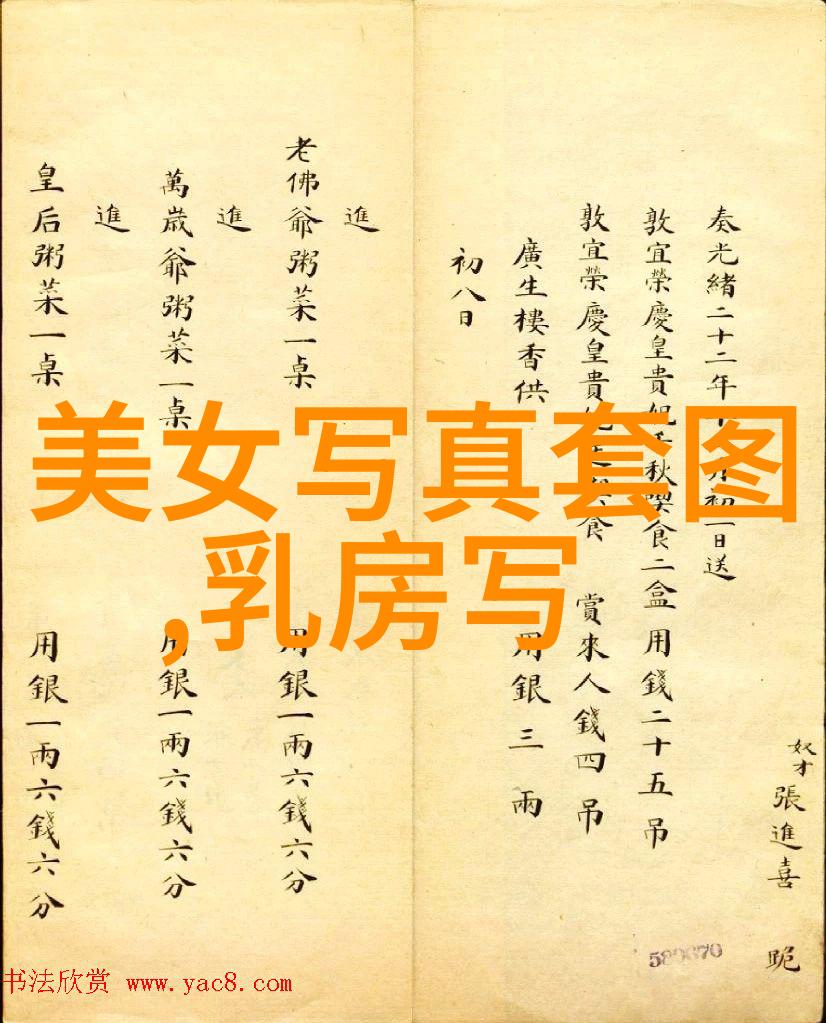 奴才張進喜 跪
奏光緒二十二年 月初一日送
敦宜榮慶皇貴妃千秋喫食二盒用錢二十五吊
敦宜榮慶皇貴妃 食 賞來人錢四吊
廣生樓香供 用銀三兩
初八日
進
老佛爺粥菜一桌 用銀一兩六錢六分
進
萬歲爺粥菜一桌 用銀一兩六錢六分
進
皇后粥菜一桌 用銀一兩六錢六分
美女写真套图
,乳房写
580670
书法欣赏 www.yac8.com